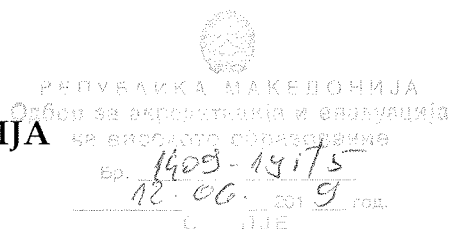 РЕПУБЛИКА МАКЕДОНИЈА
Одбор за акредитација и евалуација
ИЈА
на високото образование
Бр. 1409-
12.06. 2019 год.